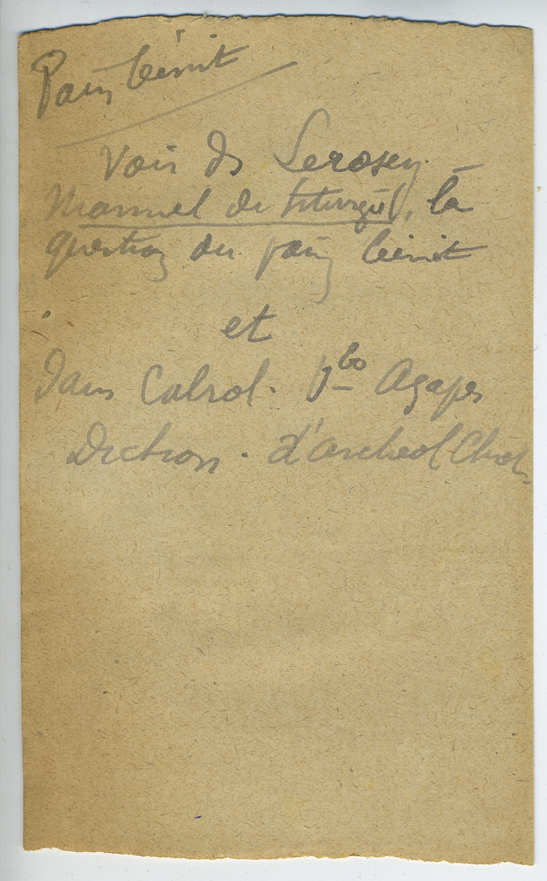 Pain bénit
Voir ds Lerosey.
Manuel de liturgie, la
question du pain bénit
et
Dans Cabrol. Vbo Agapes
Diction. d'archeol Chret.